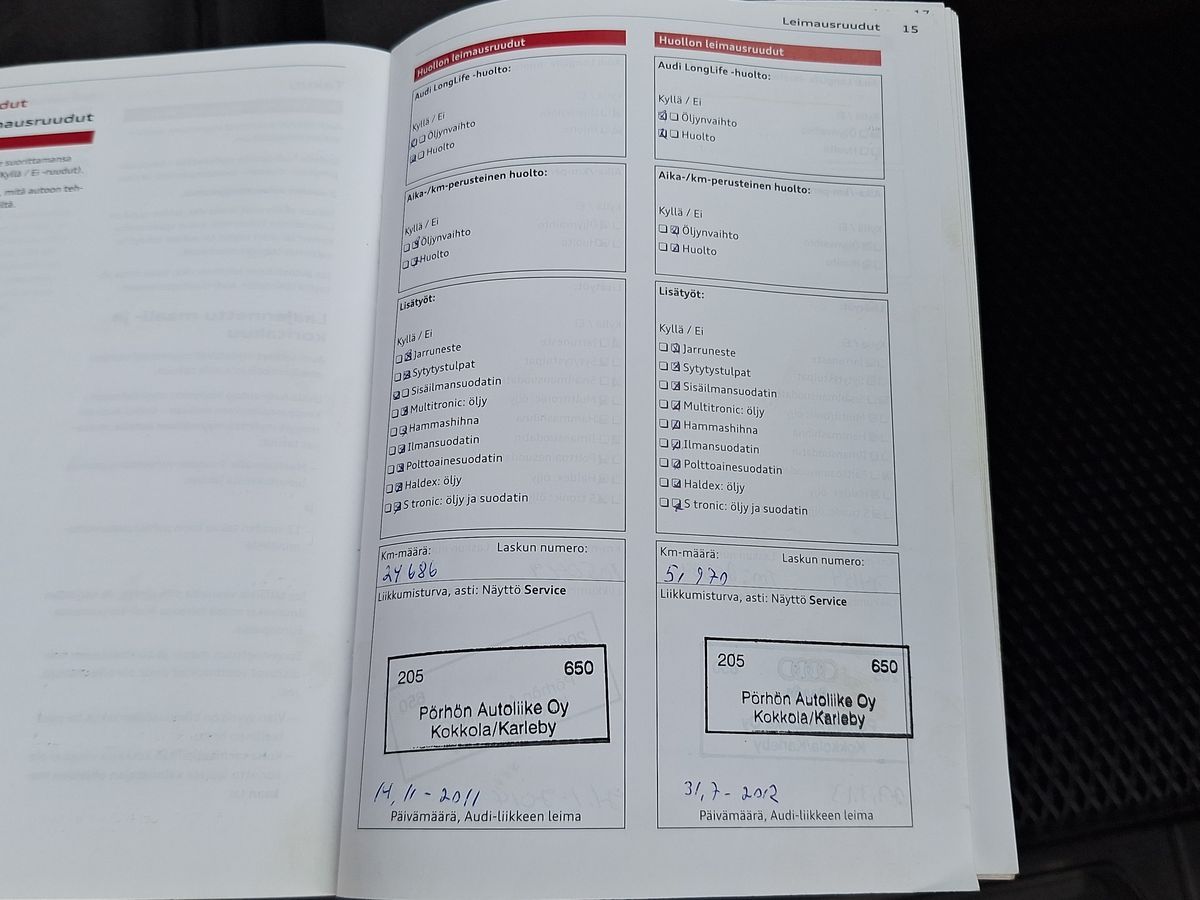 Leimausruudut 15
dut
mausruudut
suorittamansa
Kyllä / Ei -ruudut).
mitä autoon teh-
Huollon leimausruudut
Audi LongLife -huolto:
Kyllä / Ei
Öljynvaihto
Huolto
Aika-/km-perusteinen huolto:
Kyllä / Ei
Öljynvaihto
Huolto
Lisätyöt:
Kyllä / Ei
Jarruneste
Sytytystulpat
Sisäilmansuodatin
Multitronic: öljy
Hammashihna
Ilmansuodatin
Polttoainesuodatin
Haldex: öljy
S tronic: öljy ja suodatin
Km-määrä: Laskun numero:
24 686
Liikkumisturva, asti: Näyttö Service
205 650
Pörhön Autoliike Oy
Kokkola/Karleby
14, 11 - 2011
Päivämäärä, Audi-liikkeen leima
Huollon leimausruudut
Audi LongLife -huolto:
Kyllä / Ei
Öljynvaihto
Huolto
Aika-/km-perusteinen huolto:
Kyllä / Ei
Öljynvaihto
Huolto
Lisätyöt:
Kyllä / Ei
Jarruneste
Sytytystulpat
Sisäilmansuodatin
Multitronic: öljy
Hammashihna
Ilmansuodatin
Polttoainesuodatin
Haldex: öljy
S tronic: öljy ja suodatin
Km-määrä: Laskun numero:
51 970
Liikkumisturva, asti: Näyttö Service
205 650
Pörhön Autoliike Oy
Kokkola/Karleby
31, 7 - 2012
Päivämäärä, Audi-liikkeen leima